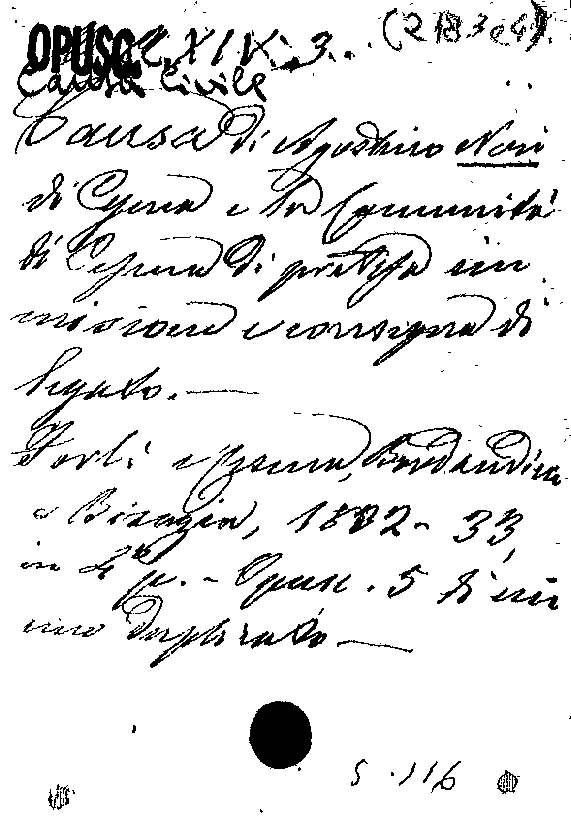 OPUSC. CXIV. 3. (2183 e 4).
Causa Civile
Causa di Agostino Nori
di Cesena e la Comunità
di Cesena di pretesa im
missione e consegna di
legato.—
Forlì e Cesena, Bordandini
e Bisazia, 1832-33,
in 4° p. - Opusc. 5 di cui
uno duplicato—
S. 116